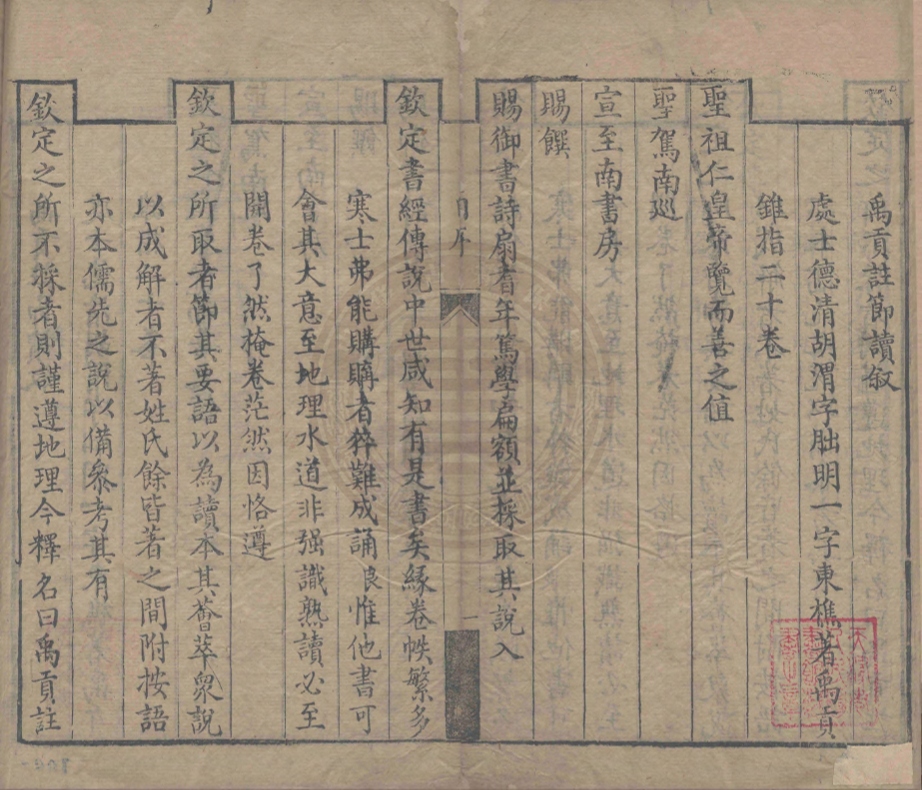 禹貢註節讀叙
處士德清胡渭字朏明一字東樵著禹貢
錐指二十卷
聖祖仁皇帝覽而善之值
聖駕南巡
宣至南書房
賜饌
賜御書詩扇耆年篤學扁額並採取其說入
自序
一
欽定書經傳說中世咸知有是書矣緣卷帙繁多
寒士弗能購購者猝難成誦浪惟他書可
會其大意至地理水道非强識熟讀必至
開卷了然掩卷茫然因恪遵
欽定之所取者節其要語以為讀本其薈萃衆說
以成解者不著姓氏餘皆著之間附按語
亦本儒先之說以備參考其有
欽定之所不採者則謹遵地理今釋名曰禹貢註